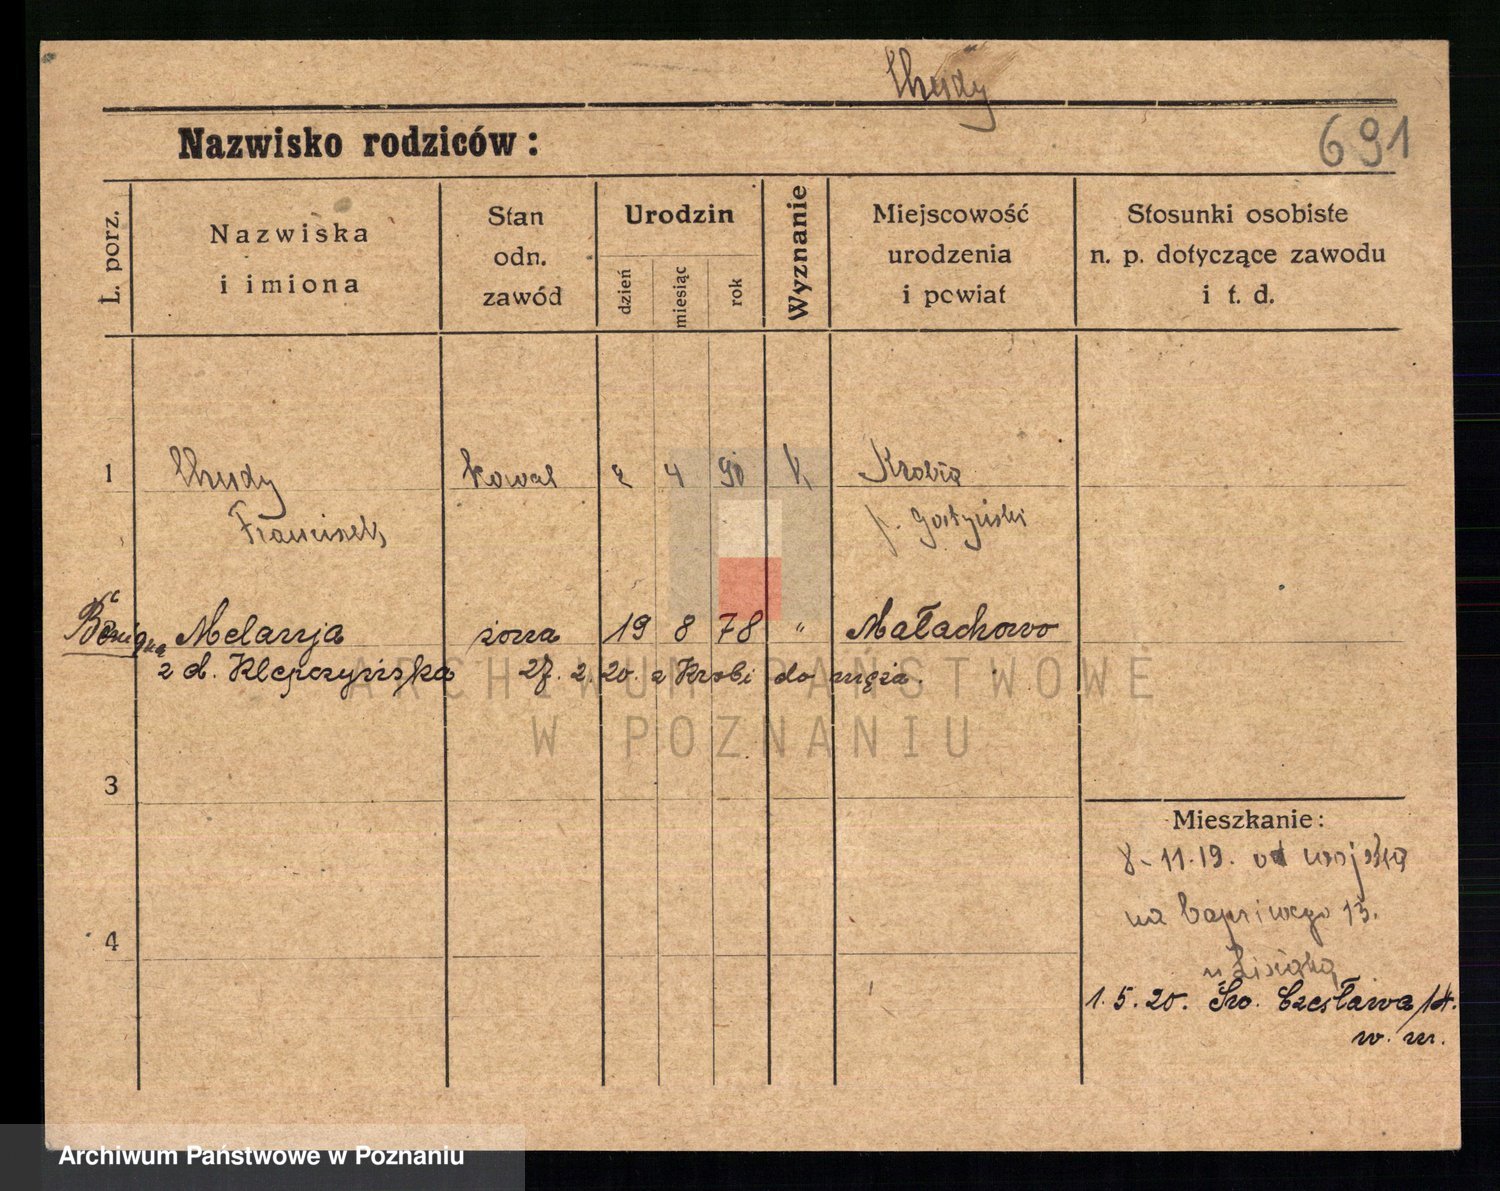 Chudy
Nazwisko rodziców:
691
L. porz.
Nazwiska
i imiona
Stan
odn.
zawód
Urodzin
dzień
miesiąc
rok
Wyznanie
Miejscowość
urodzenia
i powiat
Stosunki osobiste
n. p. dotyczące zawodu
i t. d.
1 Chudy kowal 2 4 90 k Krobia
Franciszek p. Gostyński
Benigna Melanja żona 19 8 78 " Małachowo
z d. Klepczyńska 27. 2. 20. z Krobi do męża.
3
Mieszkanie:
8-11.19. od wojska
na Capriwego 13.
4
u
1.5.20. Św. Czesława 14.
w. m.
ARCHIWUM PAŃSTWOWE
W POZNANIU
Archiwum Państwowe w Poznaniu